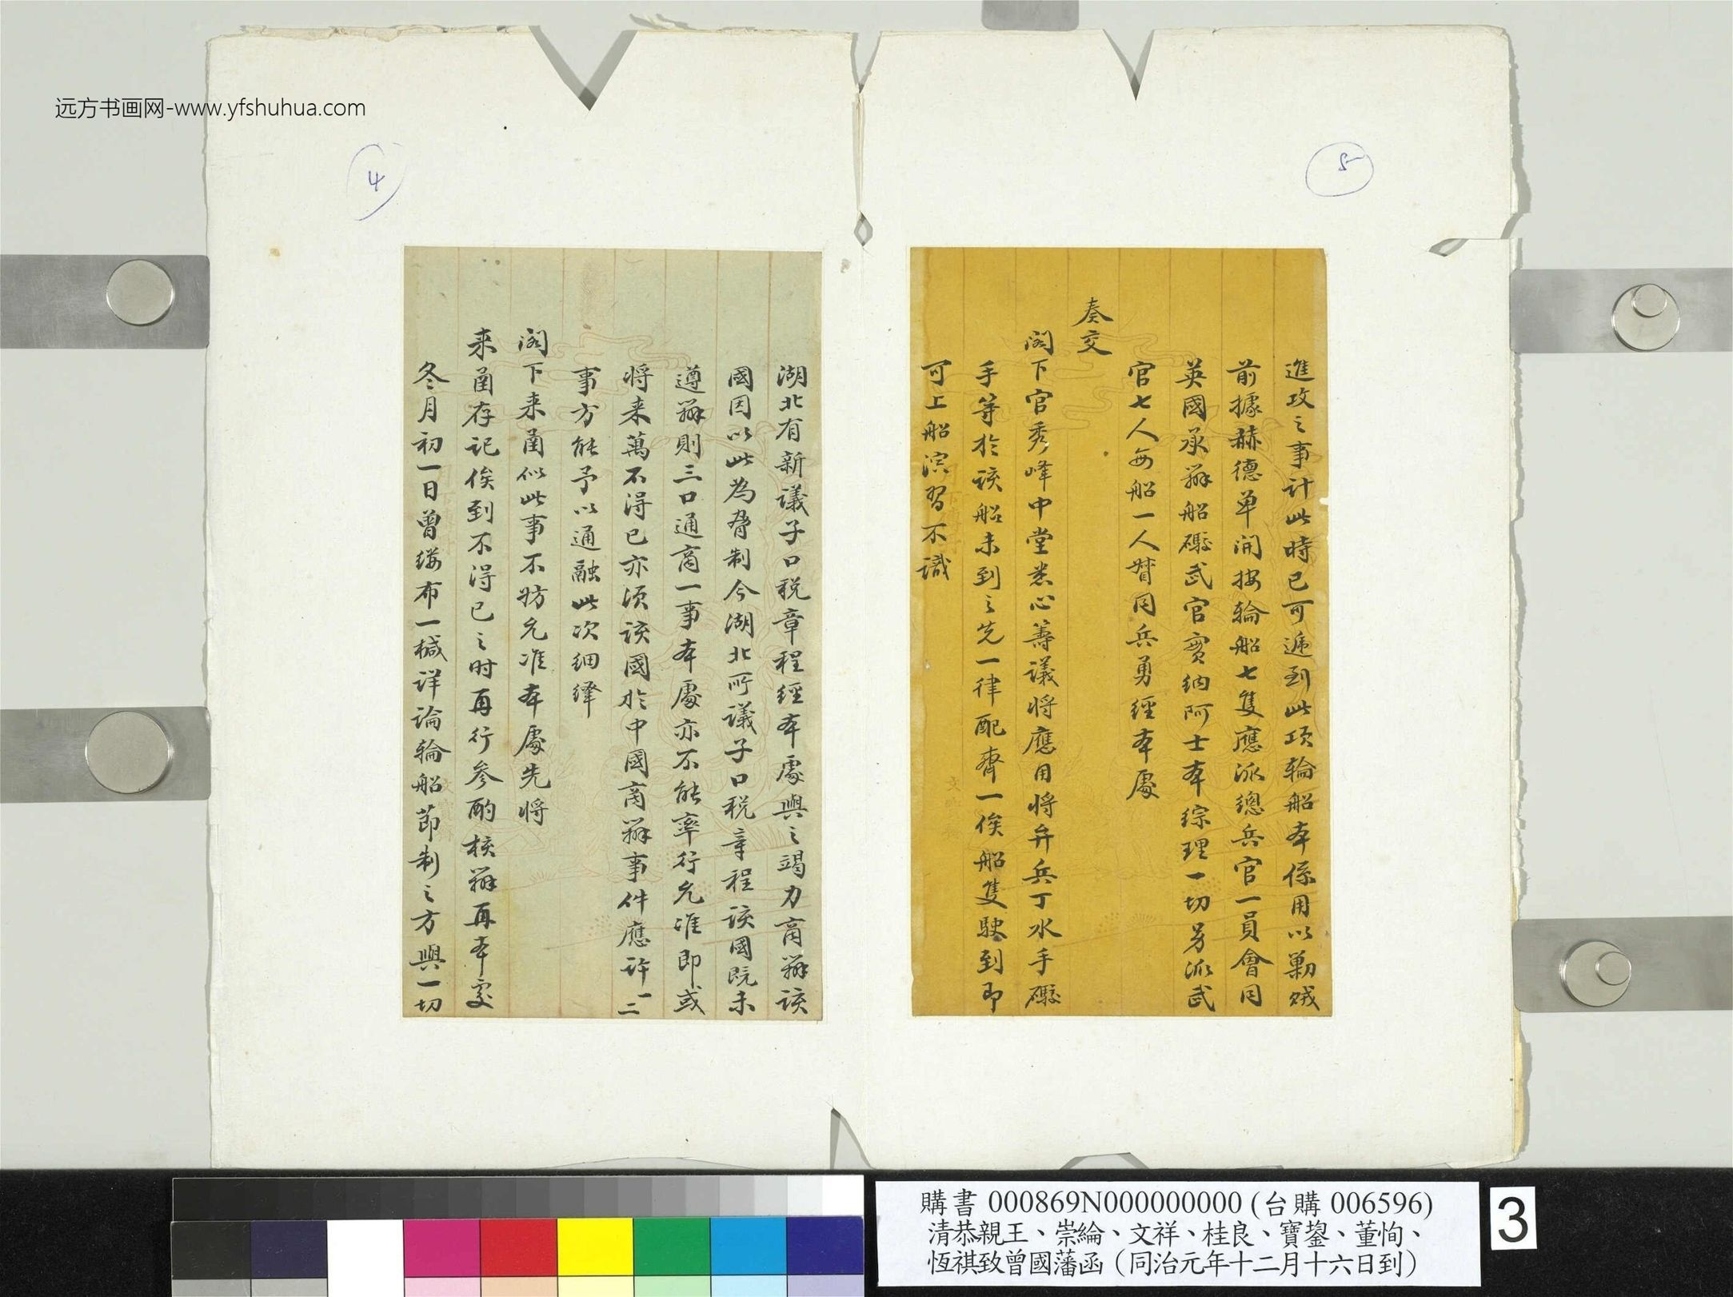 远方书画网-www.yfshuhua.com
4
湖北有新議子口税章程經本處與之竭力商辦該
國因以此為脅制今湖北所議子口税章程該國既未
遵辦則三口通商一事本處亦不能率行允准即或
將来萬不得已亦須該國於中國商辦事件應許一二
事方能予以通融此次細繹
閣下来函似此事不妨允准本處先將
来函存記俟到不得已之时再行参酌核辦再本處
冬月初一日曾縷布一椷详論輪船節制之方與一切
5
進攻之事計此時已可遞到此項輪船本係用以勦贼
前據赫德单開按輪船七隻應派總兵官一員會同
英國承辦船礮武官實纳阿士本综理一切另派武
官七人每船一人帮同兵勇經本處
奏交
閣下官秀峰中堂悉心籌議將應用將弁兵丁水手礮
手等於該船未到之先一律配齊一俟船隻駛到即
可上船演習不識
購書 000869N000000000 (台購 006596)
清恭親王、崇綸、文祥、桂良、寶鋆、董恂、
恆祺致曾國藩函（同治元年十二月十六日到）
3